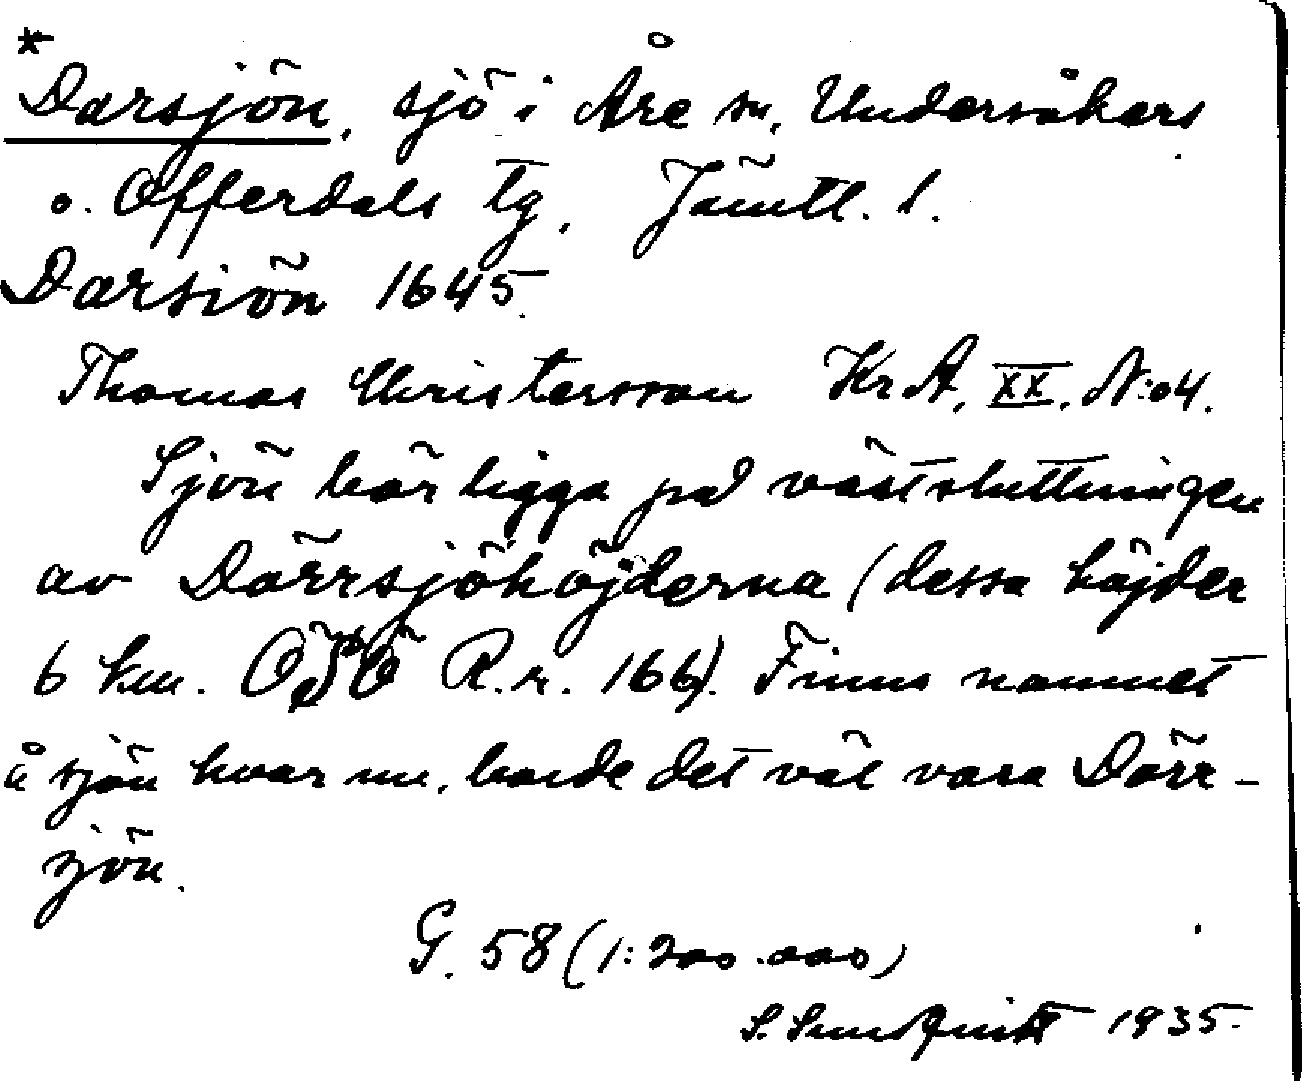 *
Darsjön, sjö i Åre sn, Undersåkers
o. Offerdals tg, Jämtl. l.
Darsiön 1645.
Thomas Christersson KrA, XX, N:o 4.
Sjön bör ligga på västsluttningen
av Dörrsjöhöjderna (dessa höjder
6 km. OSO R.r. 166). Finns namnet
å sjön kvar nu, borde det väl vara Dörr-
sjön.
G. 58 (1:200.000)
S. Sundqvist 1935.